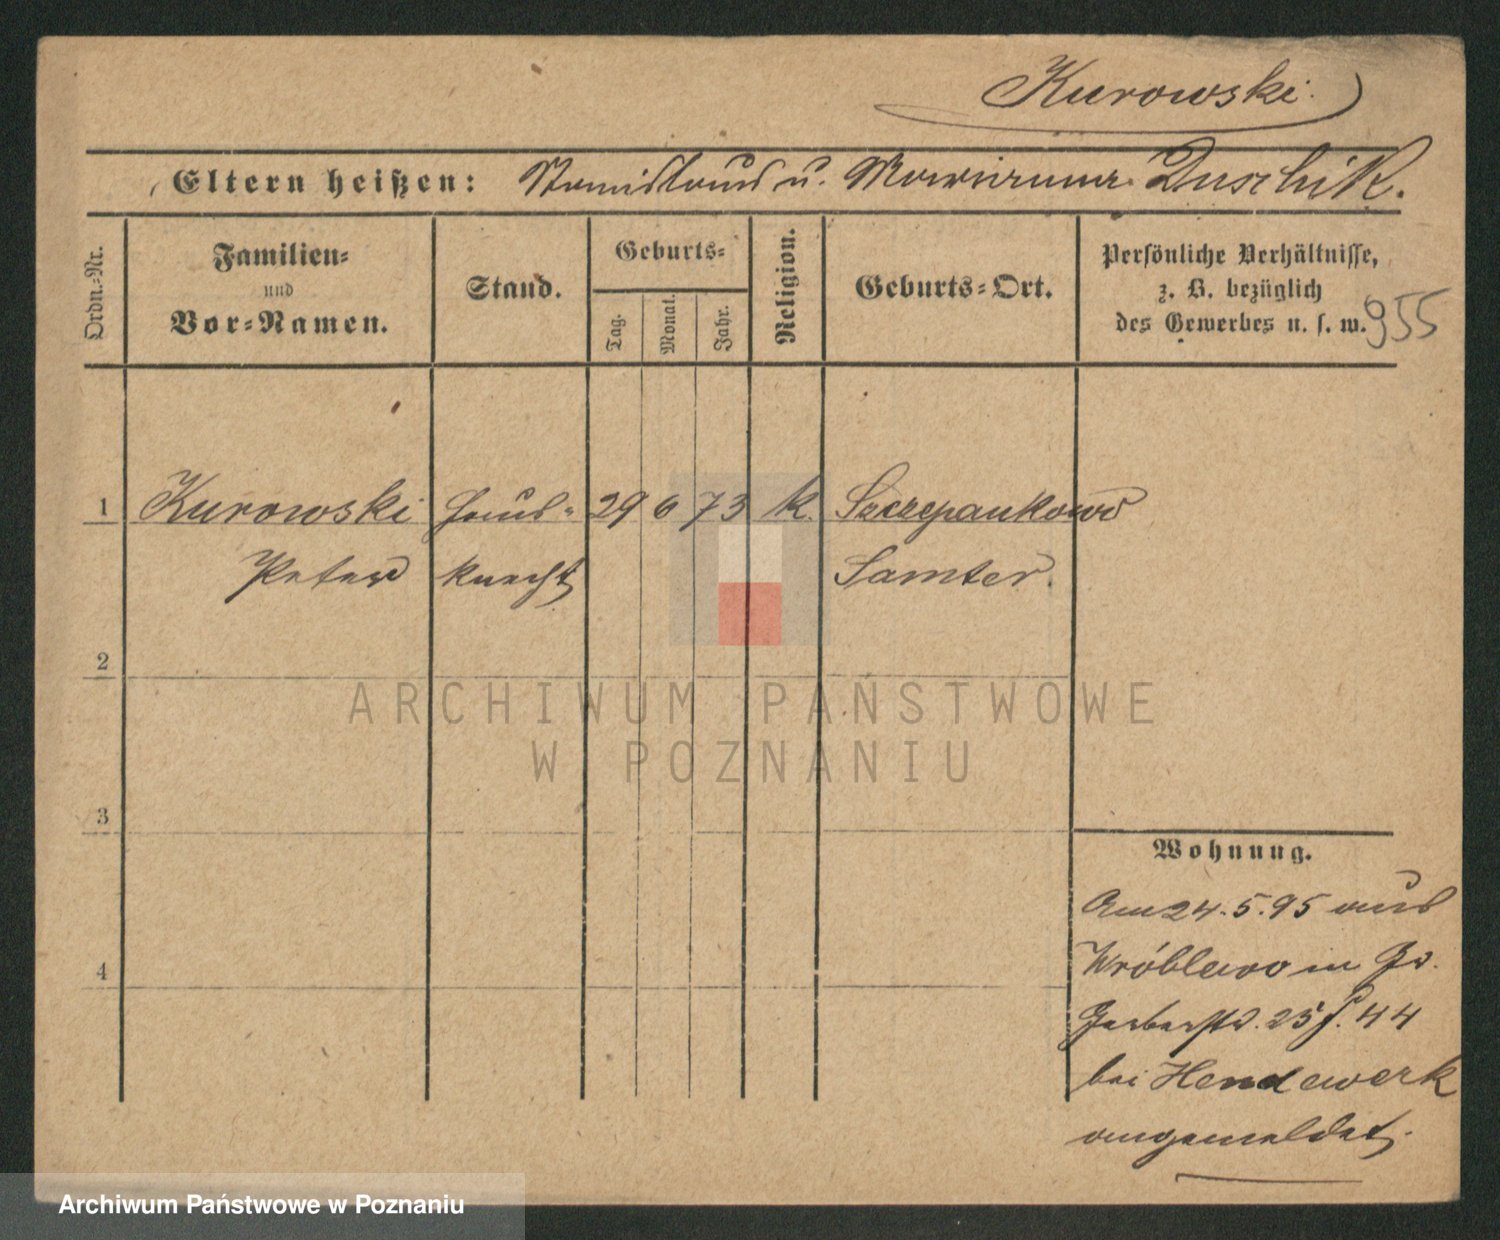 Kurowski.
Eltern heißen: Stanislaus u. Marianna Duschik.
Ordn.-Nr.
Familien-
und
Vor-Namen.
Stand.
Geburts-
Tag.
Monat.
Jahr.
Religion.
Geburts-Ort.
Persönliche Verhältnisse,
z. B. bezüglich
des Gewerbes u. s. w.
955
1 Kurowski Haus- 29 6 73 k. Szczepankowo
Peter knecht Samter.
2
3
4
Wohnung.
Am 24.5.95 aus
Wróblewo in Gr.
Gerberstr. 25 f. 44
bei Hendewerk
angemeldet.
ARCHIWUM PAŃSTWOWE
W POZNANIU
Archiwum Państwowe w Poznaniu